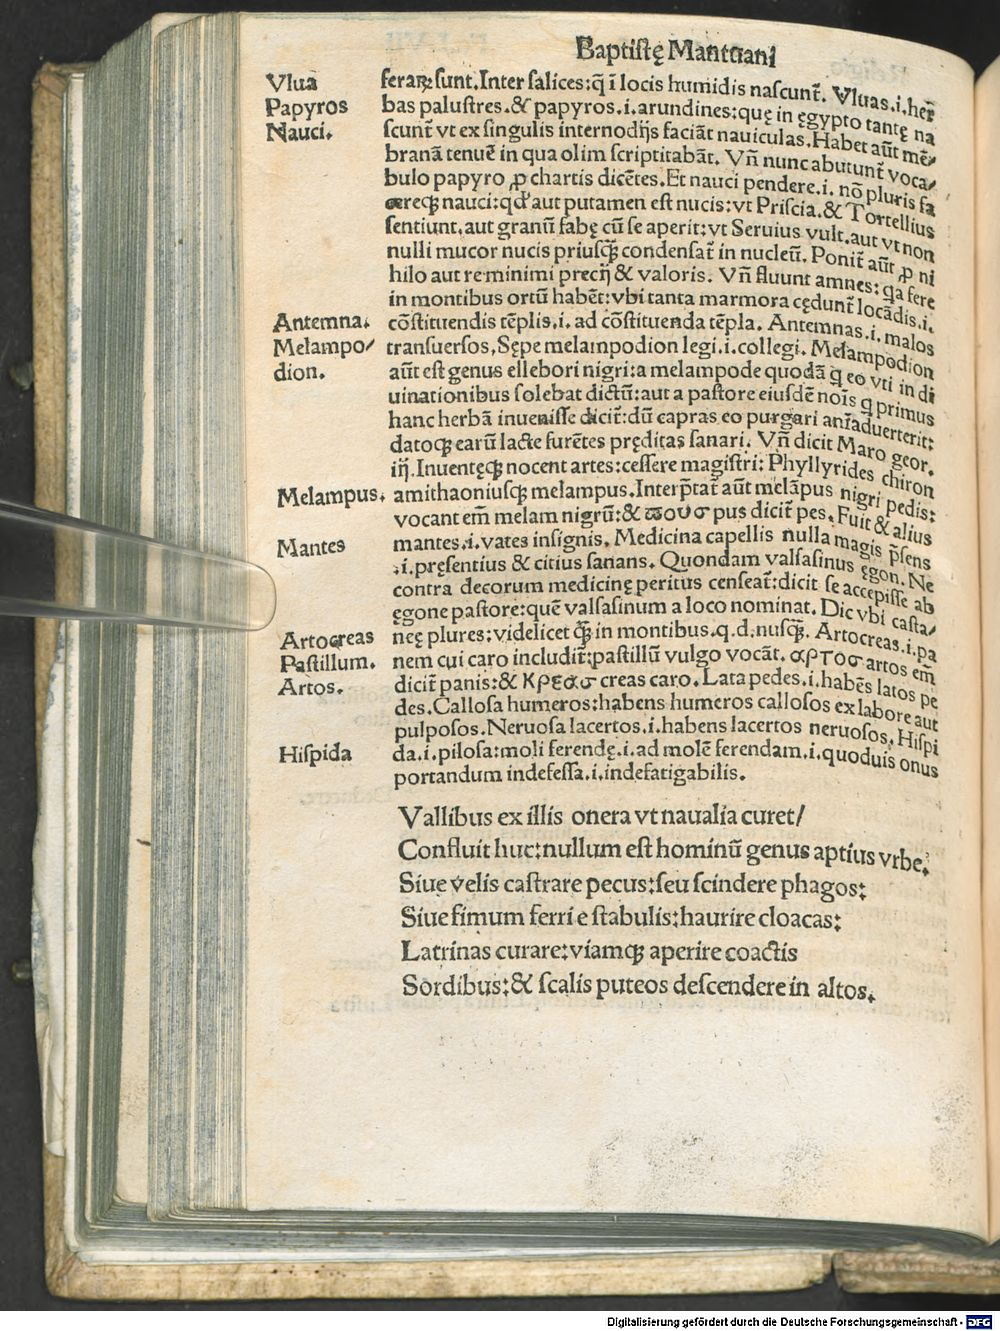 Baptistę Mantuani
Vlua
Papyros
Nauci.
ferarꝝ sunt. Inter salices: q̄ ī locis humidis nascunt̄. Vluas .i. her
bas palustres. & papyros .i. arundines: quę in ęgypto tantę na
scunt̄ vt ex singulis internodijs faciāt nauiculas. Habet aūt mē/
branā tenuē in qua olim scriptitabāt. Vn̄ nunc abutunt̄ voca/
bulo papyro ꝓ chartis dicētes. Et nauci pendere .i. nō pluris fa
cereqꝫ nauci: qđ aut putamen est nucis: vt Priscia. & Tortellius
sentiunt, aut granū fabę cū se aperit: vt Seruius vult. aut vt non
nulli mucor nucis priusqꝫ condensat̄ in nucleū. Ponit̄ aūt ꝓ ni
hilo aut re minimi precij & valoris. Vn̄ fluunt amnes: qa fere
in montibus ortū habēt: vbi tanta marmora cędunt̄ locādis .i.
Antemna.
Melampo/
dion.
cōstituendis tēplis .i. ad cōstituenda tēpla. Antemnas .i. malos
transuersos, Sępe melampodion legi .i. collegi. Melampodion
aūt est genus ellebori nigri: a melampode quodā q̄ eo vti in di
uinationibus solebat dictū: aut a pastore eiusdē nois̄ q primus
hanc herbā inuenisse dicit̄: dū capras eo purgari aniāduerterit:
datoqꝫ earū lacte furētes pręditas sanari. Vn̄ dicit Maro geor.
iij. Inuentęqꝫ nocent artes: cessere magistri: Phyllyrides chiron
Melampus.
amithaoniusqꝫ melampus. Interp̄tat̄ aūt melāpus nigri pedis:
vocant em̄ melam nigrū: & ϖουσ pus dicit̄ pes. Fuit & alius
Mantes
mantes .i. vates insignis. Medicina capellis nulla magis p̄sens
.i. pręsentius & citius sanans. Quondam valsasinus ęgon. Ne
contra decorum medicinę peritus censeat̄: dicit se accepisse ab
ęgone pastore: quē valsasinum a loco nominat. Dic vbi casta/
Artocreas
Pastillum.
Artos.
neę plures: videlicet q̄ꝫ in montibus. q.d. nusqꝫ. Artocreas .i. pa
nem cui caro includit̄: pastillū vulgo vocāt. αρτοσ artos em̄
dicit̄ panis: & κρεασ creas caro. Lata pedes .i. habēs latos pe
des. Callosa humeros: habens humeros callosos ex labore aut
pulposos. Neruosa lacertos .i. habens lacertos neruosos. Hispi
Hispida
da .i. pilosa: moli ferendę .i. ad molē ferendam .i. quoduis onus
portandum indefessa .i. indefatigabilis.
Vallibus ex illis onera vt naualia curet/
Confluit huc: nullum est hominū genus aptius vrbe.
Siue velis castrare pecus: seu scindere phagos:
Siue fimum ferri e stabulis: haurire cloacas:
Latrinas curare: viamqꝫ aperire coactis
Sordibus: & scalis puteos descendere in altos.
Digitalisierung gefördert durch die Deutsche Forschungsgemeinschaft - DFG